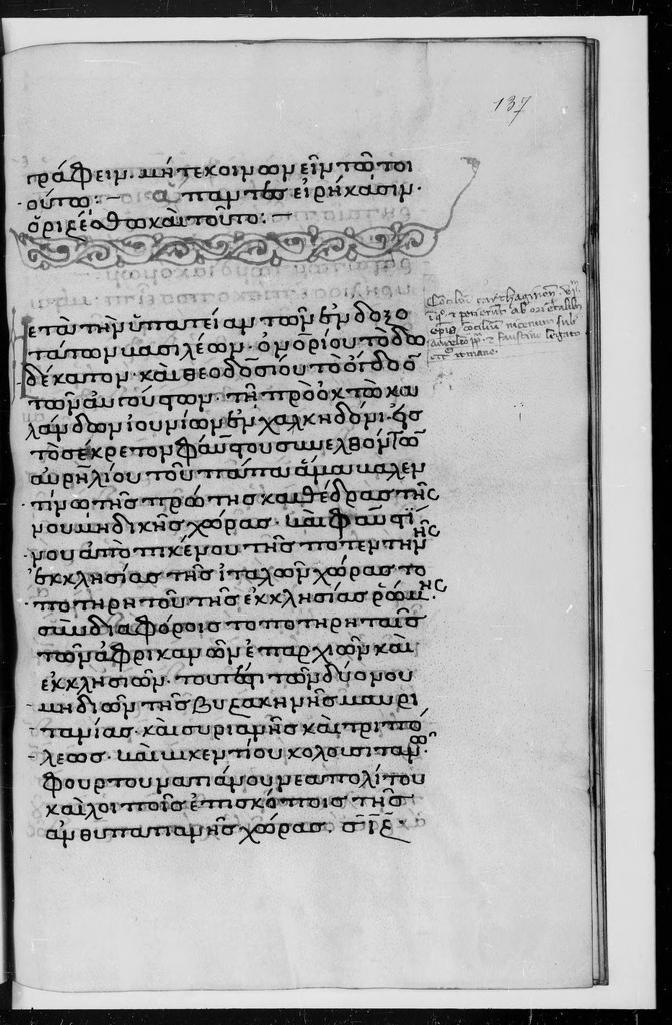 137
γράφειν. μήτε κοινωνεῖν τῶ τοι
ούτω:— ἅπαντες εἰρήκασιν.
ὁριζέσθω καὶ τοῦτο:—
Μετὰ τὴν ὑπατείαν τῶν ἐνδοξο
τάτων βασιλέων. ὀνορίου τὸ δω
δέκατον. καὶ θεοδοσίου τὸ ὄγδοο
τῶν αὐγούστων. τῆ πρὸ ὀκτὼ κα
λανδῶν ἰουνίων ἐν χαλκηδόνι. εἰς
τὸ σέκρετον φαύστου συνελθόντων
αὐρηλίου τοῦ πάπα ἅμα βαλεν
τίνω τῆς πρώτης καθέδρας τῆς
νουμηδικῆς χώρας. καὶ φαυστί
νου ἀπὸ πικένου τῆς ποτεντήνης
ἐκκλησίας τῆς ἰταλῶν χώρας το
ποτηρητοῦ τῆς ἐκκλησίας ῥώμης.
σὺν διαφόροις τοποτηρηταῖς
τῶν ἀφρικανῶν ἐπαρχιῶν καὶ
ἐκκλησιῶν. τουτέστι τῶν δύο νου
μηδιῶν τῆς βυζακηνῆς μαυρι
τανίας. καὶ συριανῆς καὶ τριπό
λεως. καὶ βικεντίου κολουσιτανοῦ
φουρτουνατιάνου νεαπολίτου
καὶ λοιποῖς ἐπισκόποις τῆς
ἀνθυπατιανῆς χώρας. σιζ.
Concilium carthaginense
episc. concilium nicenum sub
aurelio pp. et Faustino legato
ecc. romane.